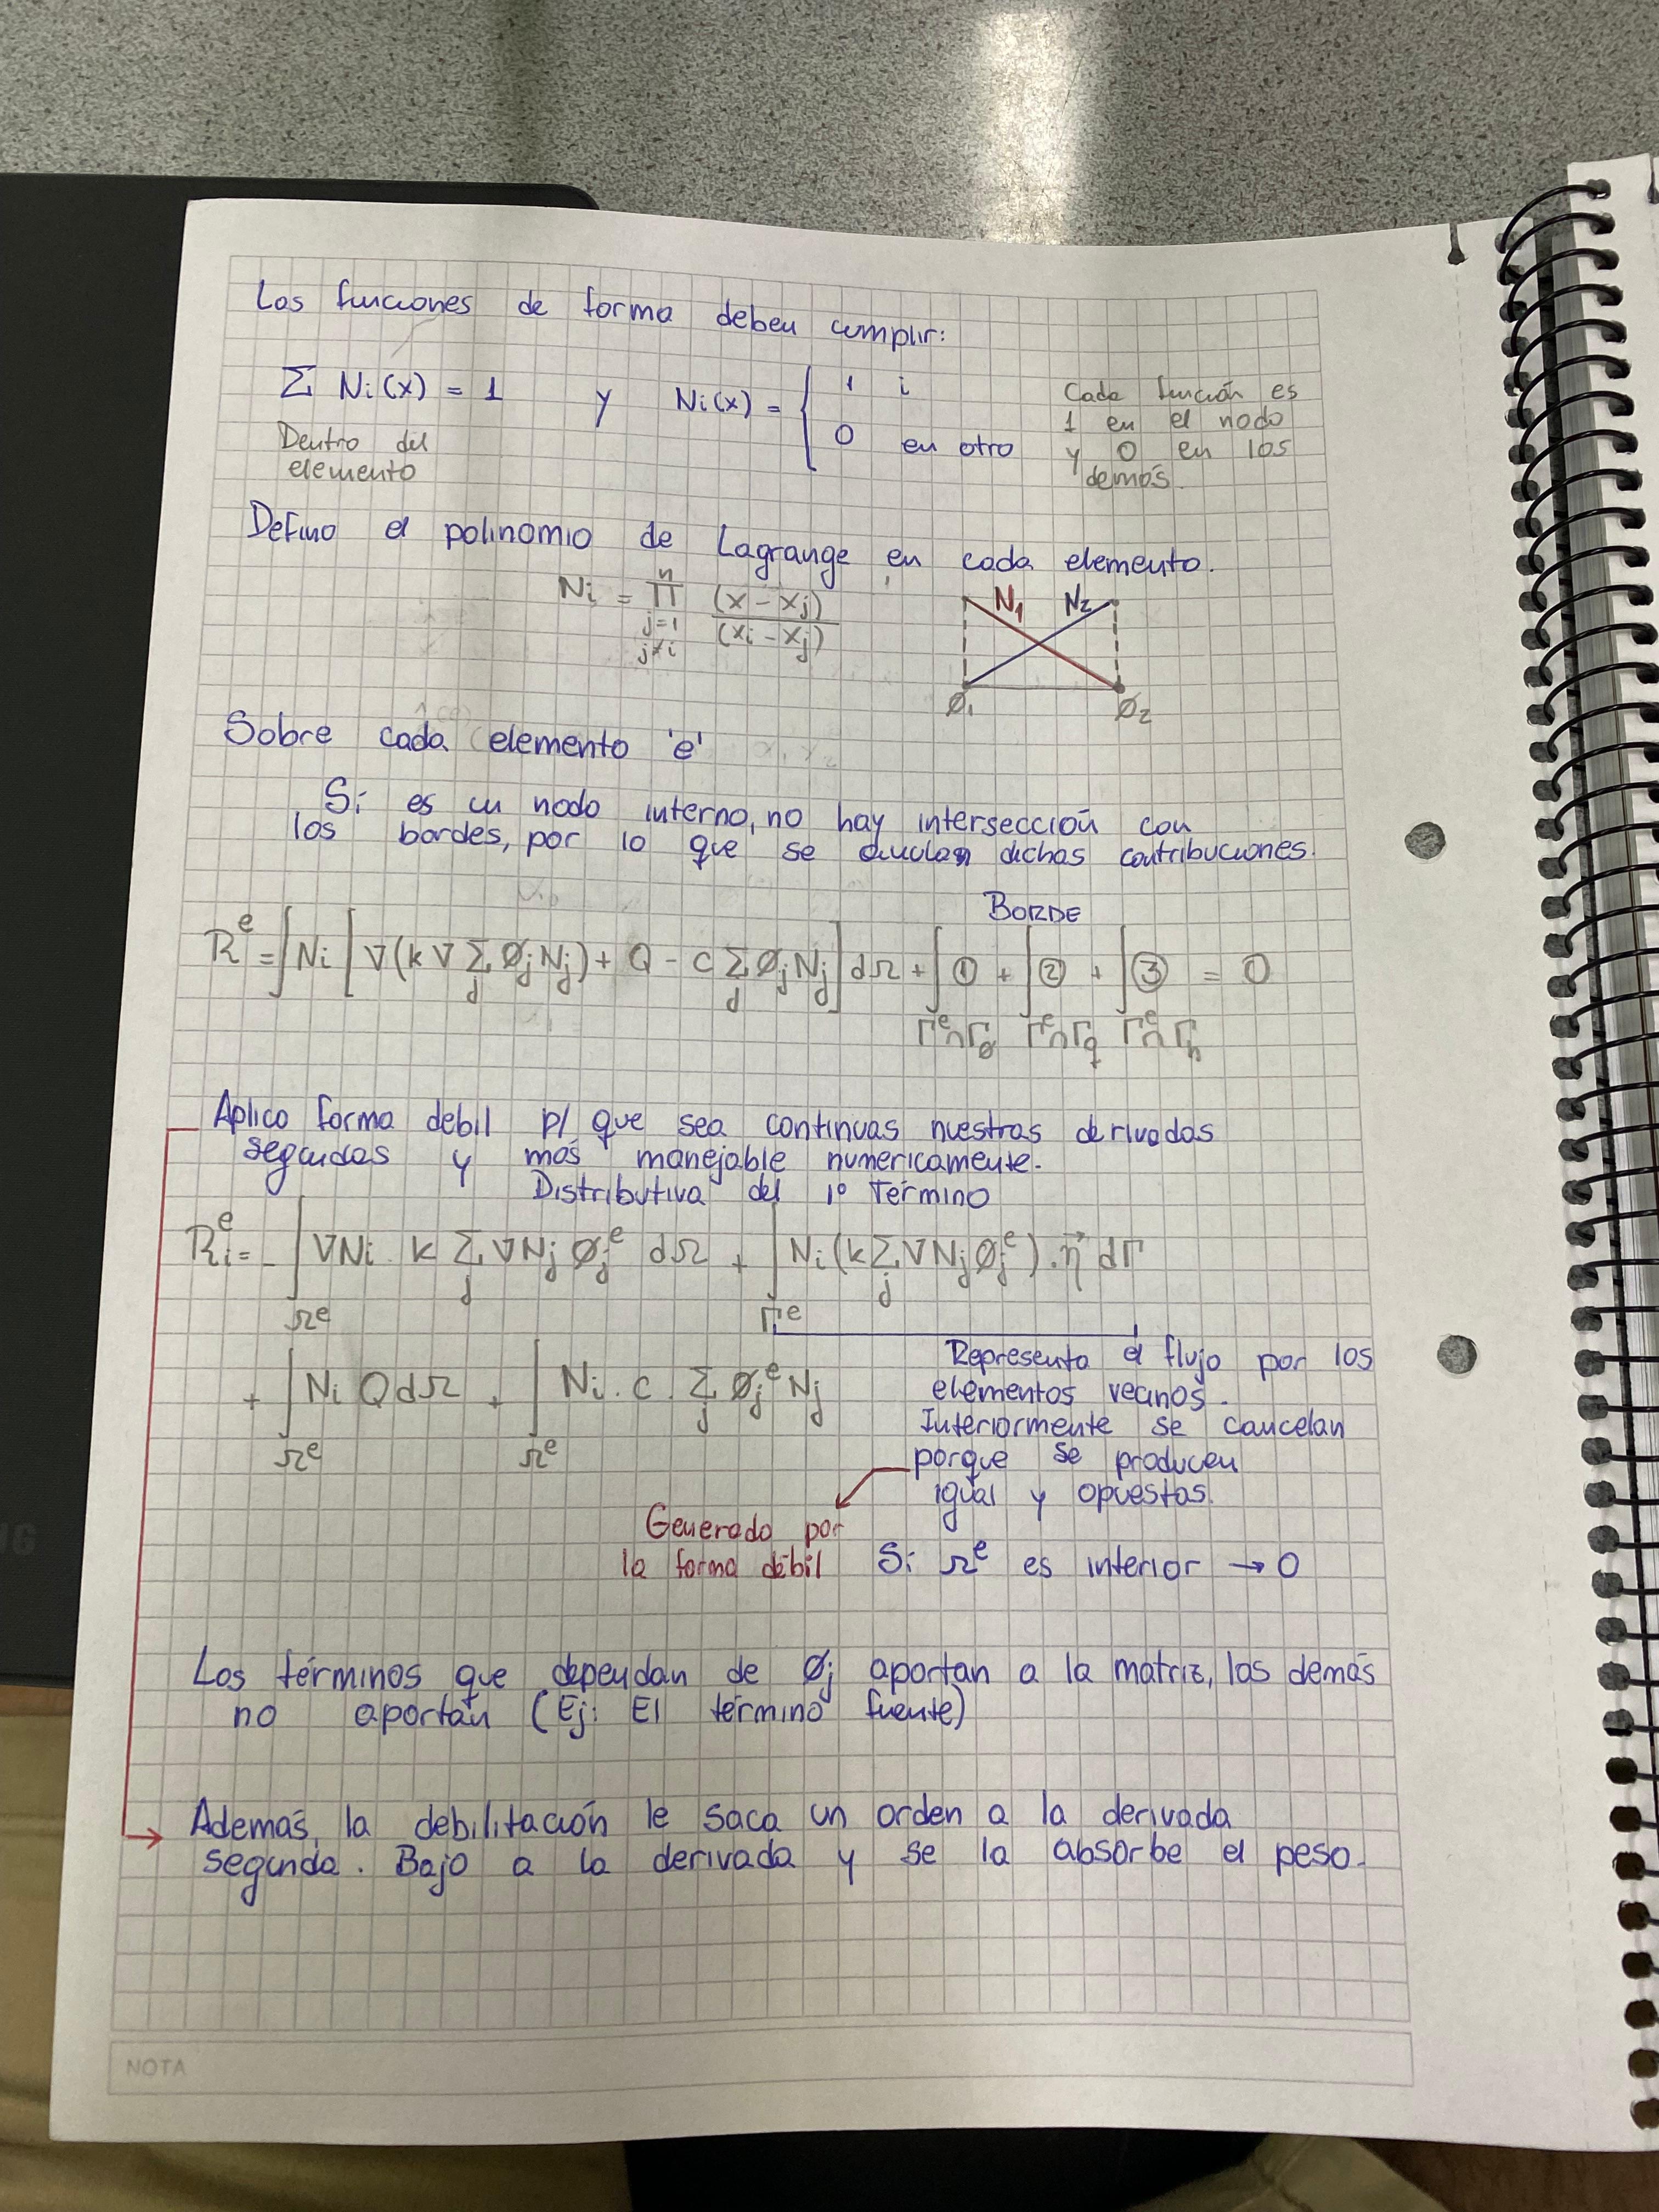 Las funciones de forma deben cumplir:
Σ Ni(x) = 1 y Ni(x) = { 1 i
0 en otro
Dentro del
elemento
Cada función es
1 en el nodo
y 0 en los
demás.
Defino el polinomio de Lagrange en cada elemento.
Ni = n ∏ j=1 j≠i (x - xj) / (xi - xj)
N1 N2
Ø1 Ø2
Sobre cada elemento 'e'
Si es un nodo interno, no hay intersección con
los bordes, por lo que se anulan dichas contribuciones.
BORDE
R^e = ∫ Ni [∇(k ∇ Σj Øj Nj) + Q - c Σj Øj Nj] dΩ + ∫ ① + ∫ ② + ∫ ③ = 0
Γ^e∩ΓØ Γ^e∩Γq Γ^e∩Γh
Aplico forma debil p/ que sea continuas nuestras derivadas
segundas y más manejable numericamente.
Distributiva del 1° Término
Ri^e = - ∫Ω^e ∇Ni . k Σj ∇Nj Øj^e dΩ + ∫Γ^e Ni (k Σj ∇Nj Øj^e) . η⃗ dΓ
+ ∫Ω^e Ni Q dΩ + ∫Ω^e Ni . c . Σj Øj^e Nj
Representa el flujo por los
elementos vecinos.
Interiormente se cancelan
porque se producen
igual y opuestas.
Generado por
la forma débil
Si Ω^e es interior → 0
Los términos que dependan de Øj aportan a la matriz, los demás
no aportan (Ej: El término fuente)
Además, la debilitación le saca un orden a la derivada
segunda. Bajo a la derivada y se la absorbe el peso.
NOTA